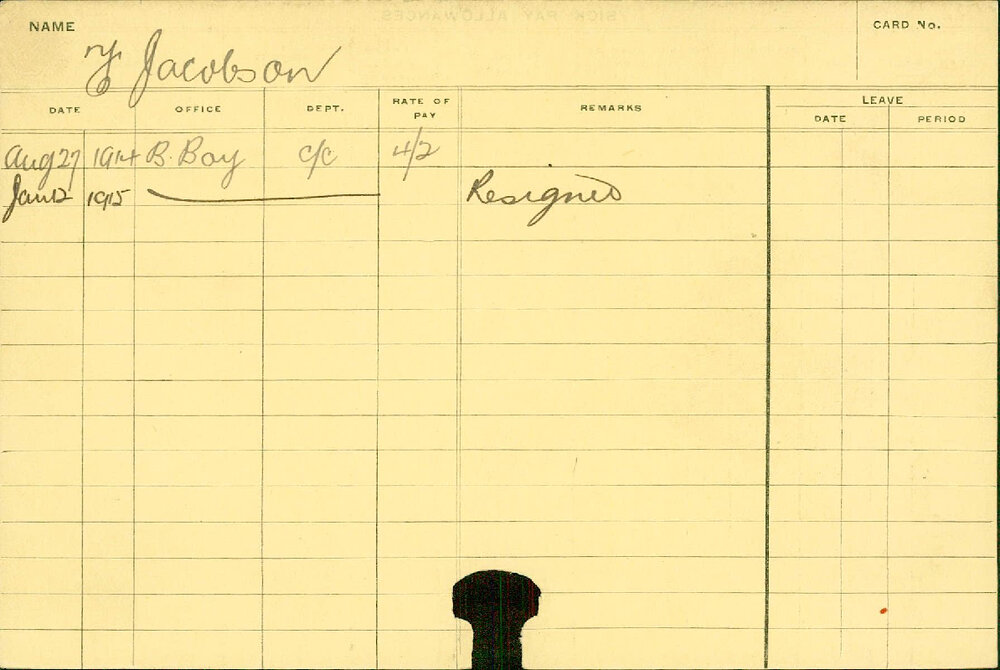 SICK PAY ALLOWANCES.
NAME
CARD No.
Jacobson
DATE OFFICE DEPT. RATE OF PAY REMARKS LEAVE
DATE PERIOD
Aug 27 1914 B. Boy c/c 4/2
Jan 12 1915 Resigned